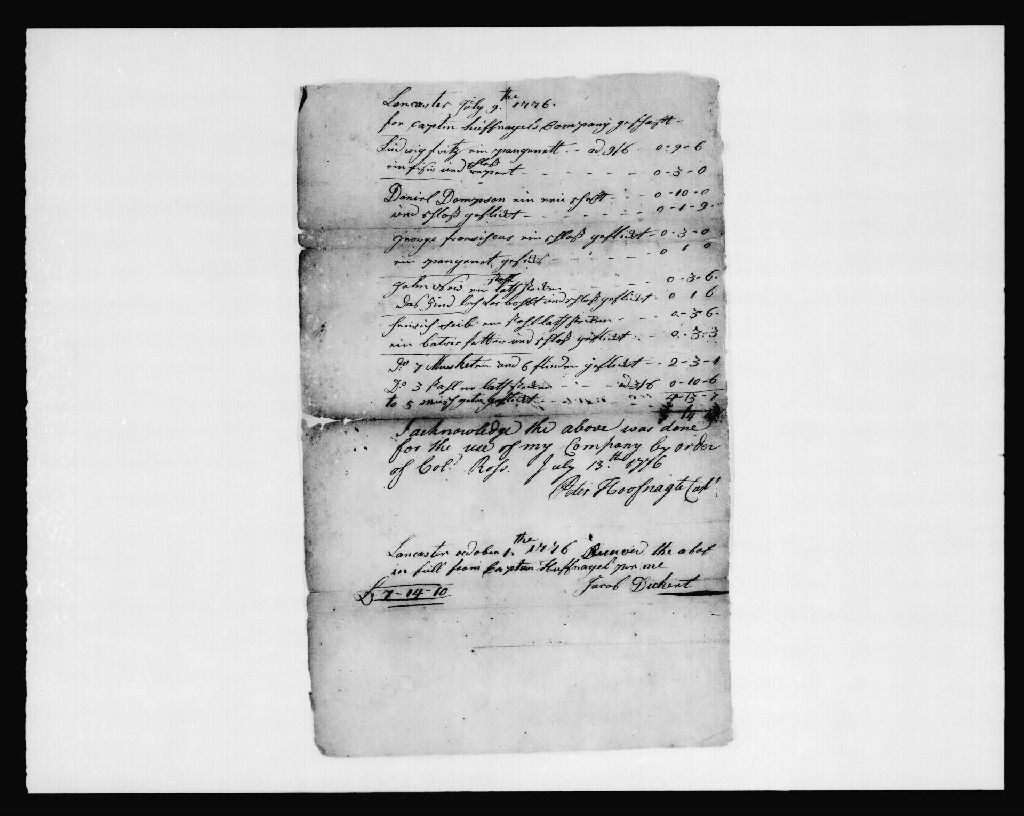 Lancaster July 9.the 1776.
for Captin Hüffnagels Company geschaft -
Ludwig fritz ein pangenett - ad 9/6 0-9-6
ein fisir und repert - - - - 0-3-0
Daniel Dompson ein neü schaft - - 0-10-0
und schloß geflickt - - - - 0-1-9
george fransiscus ein schloß geflickt - 0-3-0
ein pangenet - - 0 1 0
John ein lathstecken - - 0-3-6
das Zind loch verbohst und schloß geflickt - 0 1 6
heinrich ein stahl lathstecken - - 0-3-6
ein und schloß geflickt - - 0-3-3
Do 7 Musketen and 6 flinden geflickt - - 2-3-1
Do 3 stahl ne lathstecken - - - ad 3/6 0-10-6
to 5 geflickt
I acknowledge the above was done
for the use of my Company by order
of Col.l Ross. July 13.th 1776
Peter Hoofnagle Capt.
Lancaster october 1.the 1776 Received the abof
in full from Captain Huffnagel per me
Jacob Dickert
£ 7-14-10